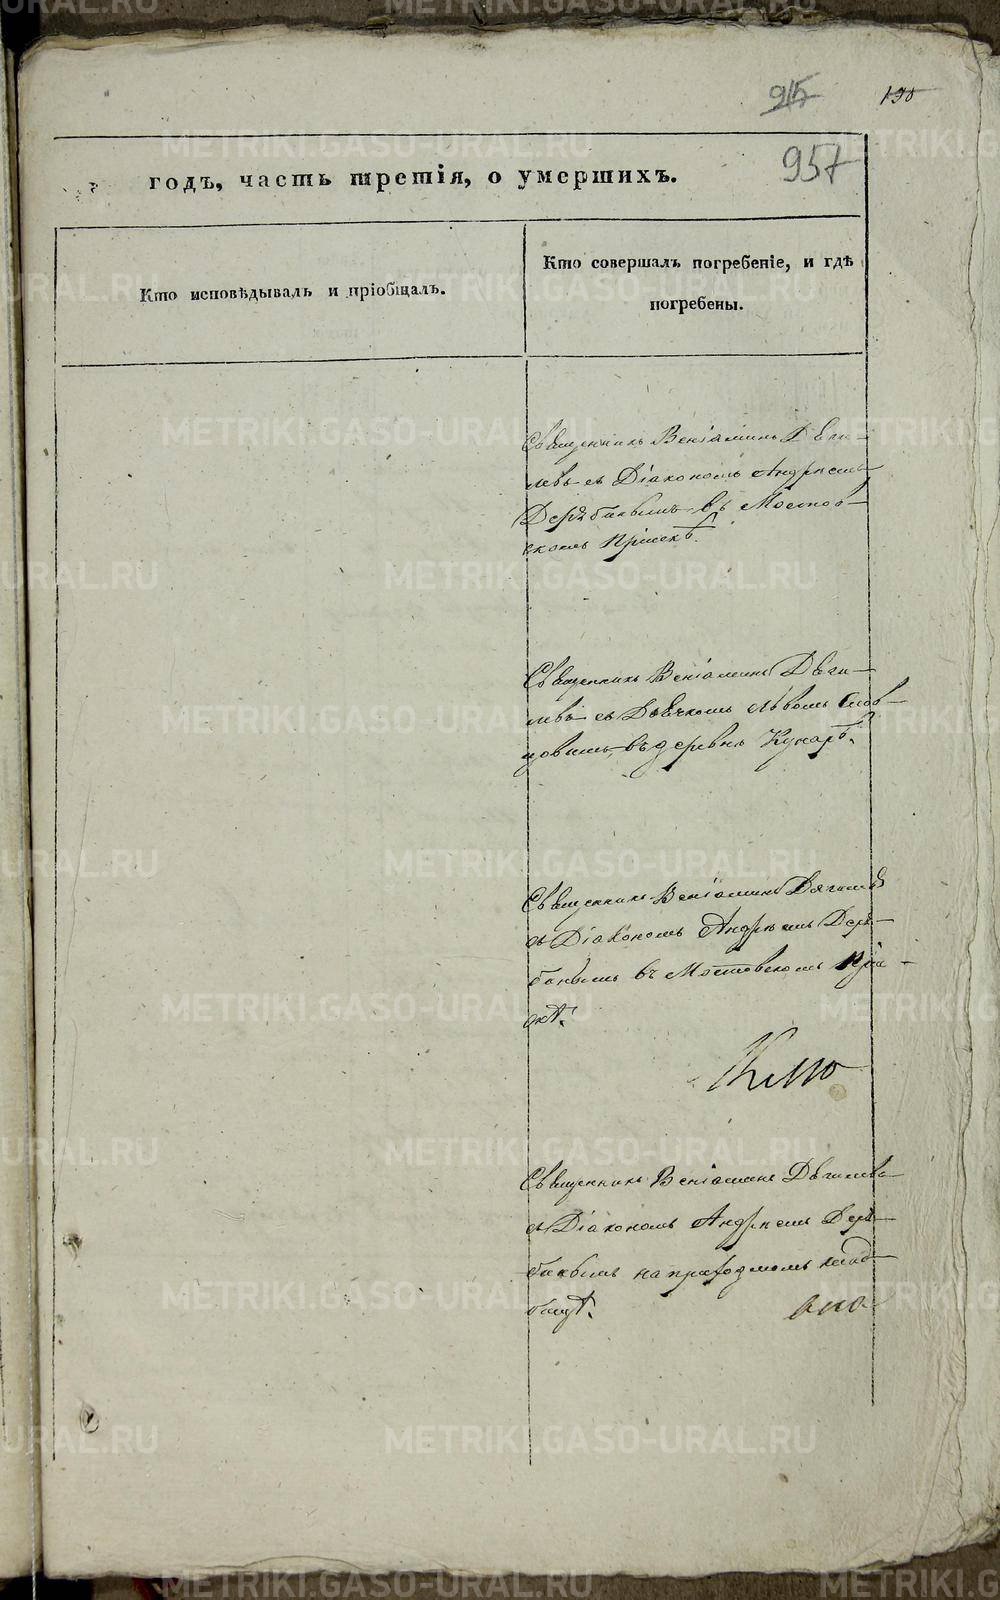 915
190
957
годъ, часть третія, о умершихъ.
Кто исповѣдывалъ и пріобщалъ.
Кто совершалъ погребеніе, и гдѣ
погребены.
Священникъ Веніаминъ Дѣги-
левъ съ Діакономъ Андреемъ
Дерябинымъ въ Мостов-
скомъ Пріискѣ.
Священникъ Веніаминъ Дѣги-
левъ съ Дьячкомъ Львомъ Слов-
цовымъ, въ деревнѣ Кунарѣ.
Священникъ Веніаминъ Дягилев
съ Діакономъ Андреемъ Деря-
бинымъ въ Мостовскомъ Прі-
искѣ.
Священникъ Веніаминъ Дягилевъ
съ Діакономъ Андреемъ Деря-
бинымъ на приходскомъ клад-
бищѣ.
METRIKI.GASO-URAL.RU